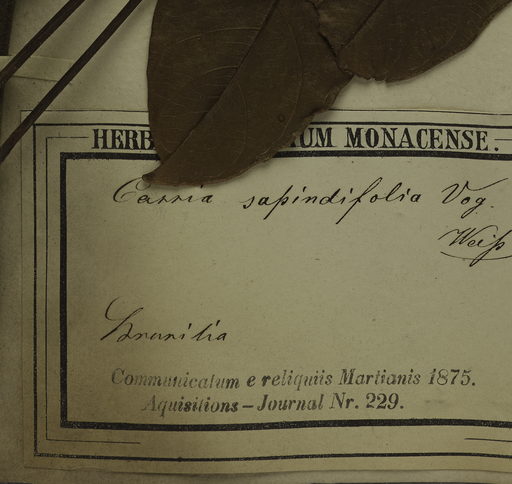 HERB IUM MONACENSE.
Cassia sapindifolia Vog.
Weiß
Brasilia
Communicatum e reliquiis Martianis 1875.
Aquisitions – Journal Nr. 229.